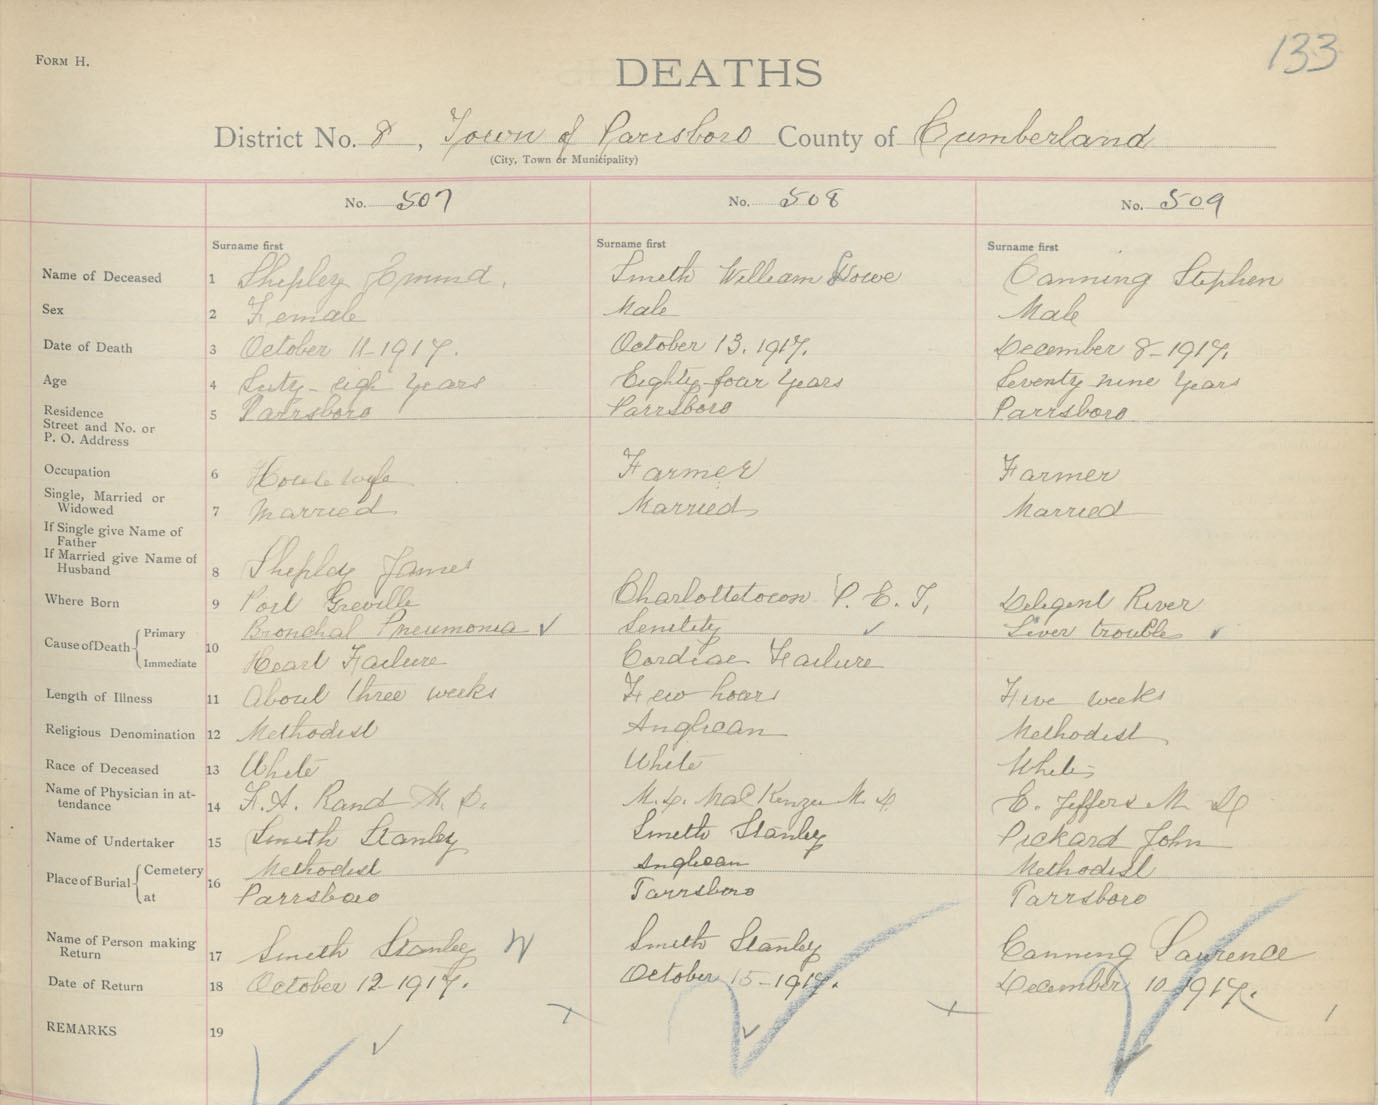 133
FORM H.
DEATHS
District No. 8, Town of Parrsboro County of Cumberland
(City, Town or Municipality)
No. 507 No. 508 No. 509
Surname first Surname first Surname first
Name of Deceased 1 Shepley Emma, Smith William Howe Canning Stephen
Sex 2 Female Male Male
Date of Death 3 October 11-1917. October 13, 1917. December 8-1917.
Age 4 years Eighty-four years Seventy nine years
Residence
Street and No. or
P. O. Address 5 Parrsboro Parrsboro Parrsboro
Occupation 6 House wife Farmer Farmer
Single, Married or
Widowed 7 Married Married Married
If Single give Name of
Father
If Married give Name of
Husband 8 Shepley James
Where Born 9 Port Greville Charlottetown P. E. I, Diligent River
Cause of Death Primary 10 Bronchal Pneumonia ✓ Senility ✓ Liver trouble ✓
Immediate Heart Failure Cordiac Failure
Length of Illness 11 About three weeks Few hours Five weeks
Religious Denomination 12 Methodist Anglican Methodist
Race of Deceased 13 White White White
Name of Physician in at-
tendance 14 F.A. Rand M. D. M.D. MacKenzie M. D. E. Jeffers M. D
Name of Undertaker 15 Smith Stanley Smith Stanley Pickard John
Place of Burial Cemetery 16 Methodist Anglican Methodist
at Parrsboro Parrsboro Parrsboro
Name of Person making
Return 17 Smith Stanley Smith Stanley Canning Laurence
Date of Return 18 October 12-1917. October 15-1917. December 10-1917.
REMARKS 19